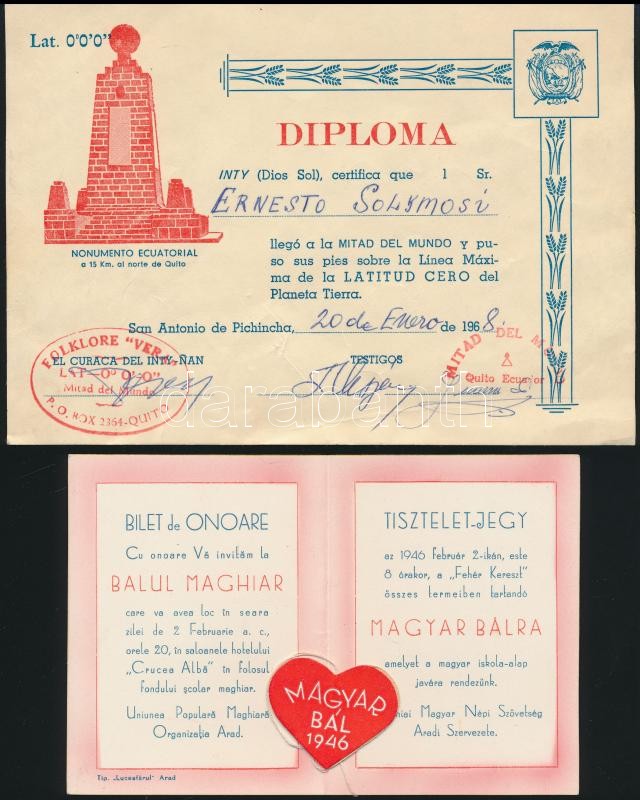 Lat. 0°0'0"
DIPLOMA
INTY (Dios Sol), certifica que l Sr.
ERNESTO SOLYMOSI
NONUMENTO ECUATORIAL
a 15 Km. al norte de Quito
llegó a la MITAD DEL MUNDO y pu-
so sus pies sobre la Línea Máxi-
ma de la LATITUD CERO del
Planeta Tierra.
San Antonio de Pichincha, 20 de Enero de 1968.
EL CURACA DEL INTY-ÑAN
TESTIGOS
FOLKLORE "VERA"
LAT. 0°0'0"
Mitad del Mundo
P. O. BOX 2364-QUITO
MITAD DEL
Quito Ecuador
darabanth
BILET de ONOARE
Cu onoare Vă invităm la
BALUL MAGHIAR
care va avea loc în seara
zilei de 2 Februarie a. c.,
orele 20, în saloanele hotelului
„Crucea Albă" în folosul
fondului școlar maghiar.
Uniunea Populară Maghiară
Organizația Arad.
Tip. „Luceafărul" Arad
TISZTELET-JEGY
az 1946 február 2-ikán, este
8 órakor, a „Fehér Kereszt"
összes termeiben tartandó
MAGYAR BÁLRA
amelyet a magyar iskola-alap
javára rendezünk.
niai Magyar Népi Szövetség
Aradi Szervezete.
MAGYAR
BÁL
1946